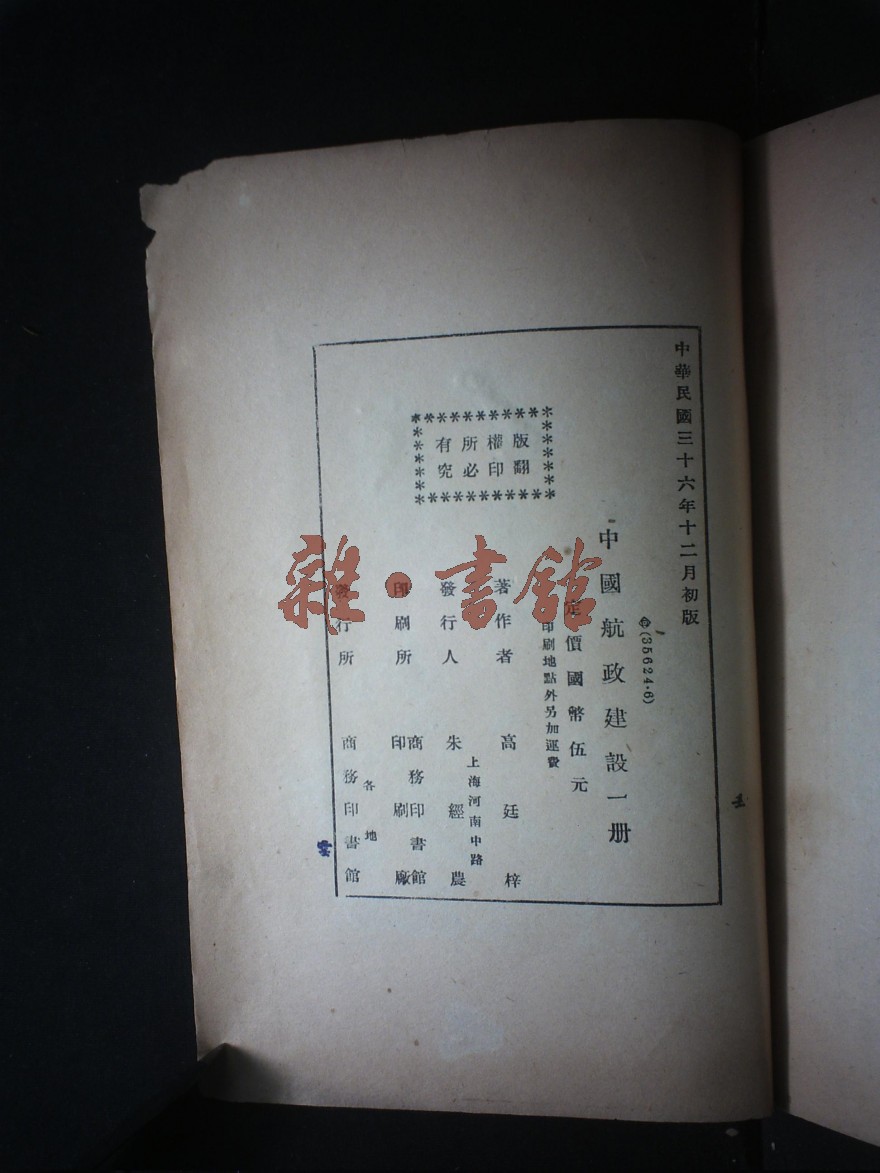 中華民國三十六年十二月初版
㊥(35624·6)
中國航政建設一册
定價國幣伍元
印刷地點外另加運費
版權所有
翻印必究
著作者 高廷梓
上海河南中路
發行人 朱經農
印刷所 商務印書館印刷廠
各地
發行所 商務印書館
雜·書館